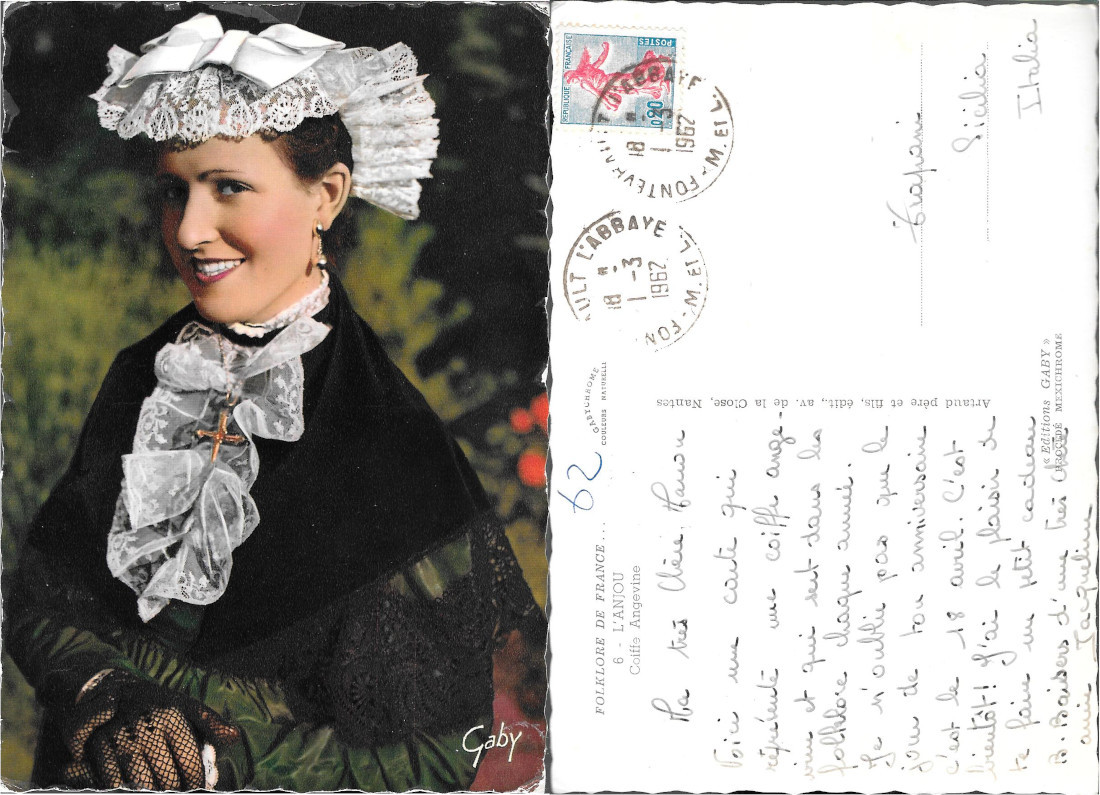 Gaby
FOLKLORE DE FRANCE...
6 - L'ANJOU
Coiffe Angevine
62
Ma très Chère Manou
Voici une carte qui
représente une coiffe ange-
vine et qui sert dans les
folklore chaque année.
Je n'oublie pas que le
jour de ton anniversaire
c'est le 18 avril. C'est
bientôt! J'ai le plaisir de
te faire un petit cadeau
B. Baisers d'une très chère
amie Jacqueline
GABYCHROME
COULEURS NATURELLES
Artaud père et fils, édit., av. de la Close, Nantes
« Editions GABY »
PROCÉDÉ MEXICHROME
REPUBLIQUE FRANÇAISE
POSTES
0,20
L'ABBAYE
18 H
1 -3
1962
FONTEVRAULT
M. ET L.
AULT L'ABBAYE
18 H
1 -3
1962
M. ET L. - FON
Trapani
Sicilia
Italia